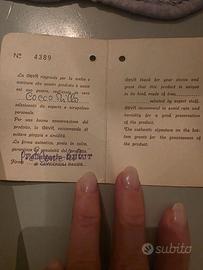 No 4389
La davit ringrazia per la scelta e
assicura che questo prodotto è unico
nel suo genere, realizzato in vero
COCCODRILLO
selezionato da esperti e scrupoloso
personale.
Per una buona conservazione del
prodotto, la davit, raccomanda di
evitare pioggia e umidità.
La firma autentica, posta in calce,
garantisce la genuinità del prodotto.
davit thank for your choice and
grant that this product is unique
in its kind, made of true
selected by expert staff.
davit recommend to avoid rain and
humidity for a good preservation
of the product.
The authentic signature on the bottom
grants for the genuineness of
the product.
subito